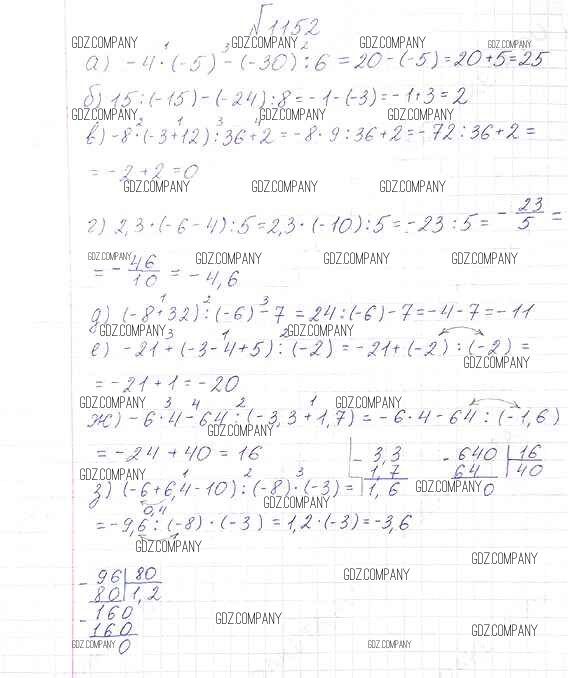 №1152
GDZ.COMPANY GDZ.COMPANY GDZ.COMPANY GDZ.COMPANY
1 3 2
а) -4·(-5)-(-30):6=20-(-5)=20+5=25
б) 15:(-15)-(-24):8=-1-(-3)=-1+3=2
GDZ.COMPANY GDZ.COMPANY GDZ.COMPANY
2 1 3 4
в) -8·(-3+12):36+2=-8·9:36+2=-72:36+2=
=-2+2=0
GDZ.COMPANY GDZ.COMPANY GDZ.COMPANY
г) 2,3·(-6-4):5=2,3·(-10):5=-23:5=-23/5=
GDZ.COMPANY GDZ.COMPANY GDZ.COMPANY GDZ.COMPANY
=-46/10=-4,6
1 2 3
д) (-8+32):(-6)-7=24:(-6)-7=-4-7=-11
GDZ.COMPANY GDZ.COMPANY
3 1 2
е) -21+(-3-4+5):(-2)=-21+(-2):(-2)=
GDZ.COMPANY
=-21+1=-20
GDZ.COMPANY GDZ.COMPANY
3 4 2 1
ж) -6·4-64:(-3,3+1,7)=-6·4-64:(-1,6)
GDZ.COMPANY
=-24+40=16
-3,3 -640 16
1,7 64 40
1,6 0
GDZ.COMPANY GDZ.COMPANY
1 2 3
з) (-6+6,4-10):(-8)·(-3)=
0,4
GDZ.COMPANY
=-9,6:(-8)·(-3)=1,2·(-3)=-3,6
GDZ.COMPANY GDZ.COMPANY
-96 80
80 1,2
-160
160
0
GDZ.COMPANY
GDZ.COMPANY GDZ.COMPANY
GDZ.COMPANY GDZ.COMPANY